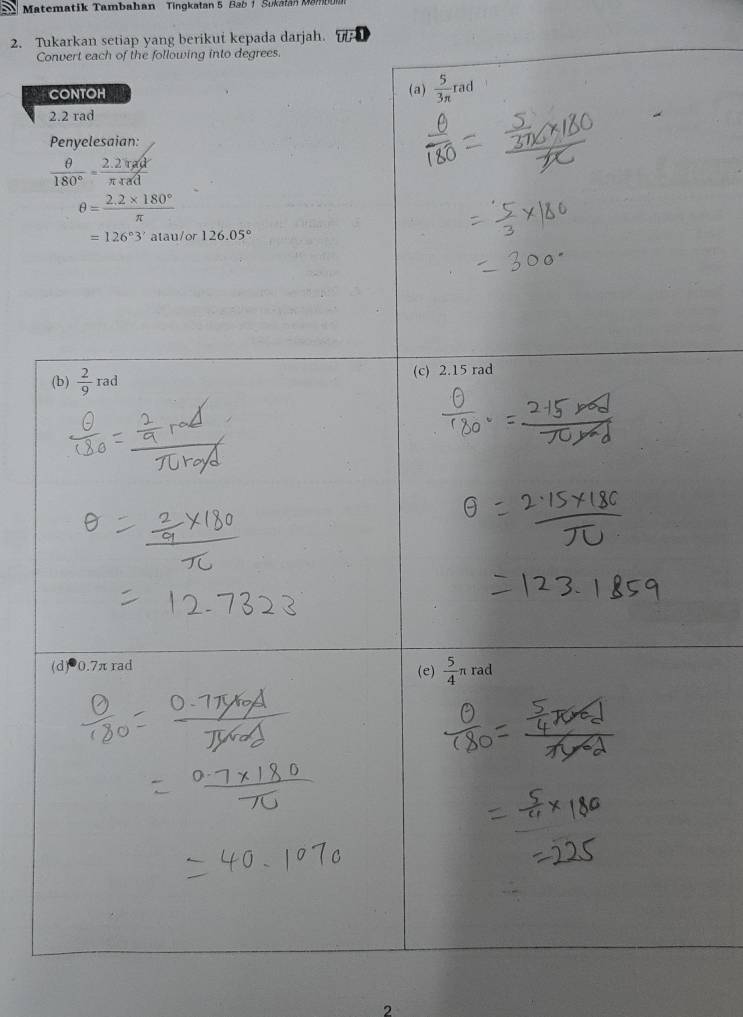 Matematik Tambahan Tingkatan 5 Bab 1 Sukatan Membulat
2. Tukarkan setiap yang berikut kepada darjah. TP 1
Convert each of the following into degrees.
CONTOH
2.2 rad
Penyelesaian:
θ/180° = 2.2 rad/π rad
θ = 2.2 × 180°/π
= 126°3′ atau/or 126.05°
(a) 5/3π rad
θ/180 = 5/3π × 180/π
= 5/3 × 180
= 300°
(b) 2/9 rad
θ/180 = 2/9 rad/π rad
θ = 2/9 × 180/π
= 12.7323
(c) 2.15 rad
θ/180° = 2.15 rad/π rad
θ = 2.15 × 180/π
= 123.1859
(d) 0.7π rad
θ/180 = 0.7π rad/π rad
= 0.7 × 180/π
= 40.1070
(e) 5/4 π rad
θ/180 = 5/4 π rad/π rad
= 5/4 × 180
= 225
2